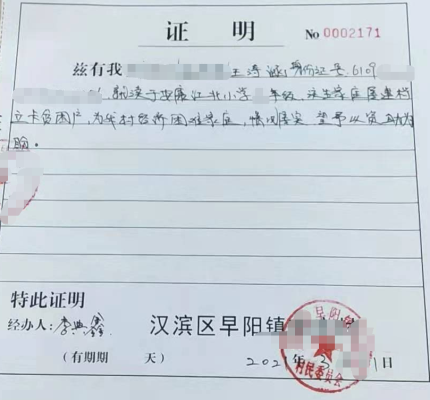 证明
No 0002171
兹有我 王诗涵,身份证号:6109
,就读于安康江北小学 年级,该生家庭属建档
立卡贫困户,为我村经济困难家庭,情况属实,望予以资助为
盼。
特此证明
经办人:李典鑫
汉滨区早阳镇
(有期期 天)
2021年3 1日
早阳镇
村民委员会